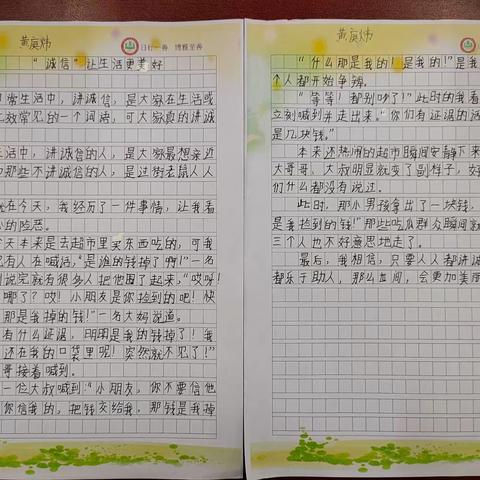 黄庭炜
日行一善 博雅至善
“诚信”让生活更美好
常生活中，讲诚信，是大家在生活或
效常见的一个词语，可大家真的讲诚
活中，讲诚信的人，是大家最想亲近
那些不讲诚信的人，是过街老鼠人人
在今天，我经历了一件事情，让我看
心的险恶。
天本来是去超市里买东西吃的，可我
有人在喊话，“是谁的钱掉了啊！”一名
说完就有很多人把他围了起来，“哎呀！
哪了？哎！小朋友是你捡到的吧！快
那是我掉的钱！”一名大妈说道。
有什么证据，明明是我的钱掉了！我
还在我的口袋里呢！突然就不见了！”
哥接着喊到。
一位大叔喊到“小朋友，你不要信他
你信我的，把钱交给我，那钱是我掉
黄庭炜
“什么那是我的！是我的！”是我
个人都开始争辨。
“等等！都别吵了！”此时的我看
立刻喊到并走出来。“你们有证据的话
是几块钱。”
本来还热闹的超市瞬间安静下来
大哥哥、大叔明显就变了副样子，好
们什么都没有说过。
此时，那小男孩拿出了一块钱，
是我捡到的钱！”那些吃瓜群众瞬间就
三个人也不好意思地走了。
最后，我相信，只要人人都讲诚
都乐于助人，那么世间，会更加美丽